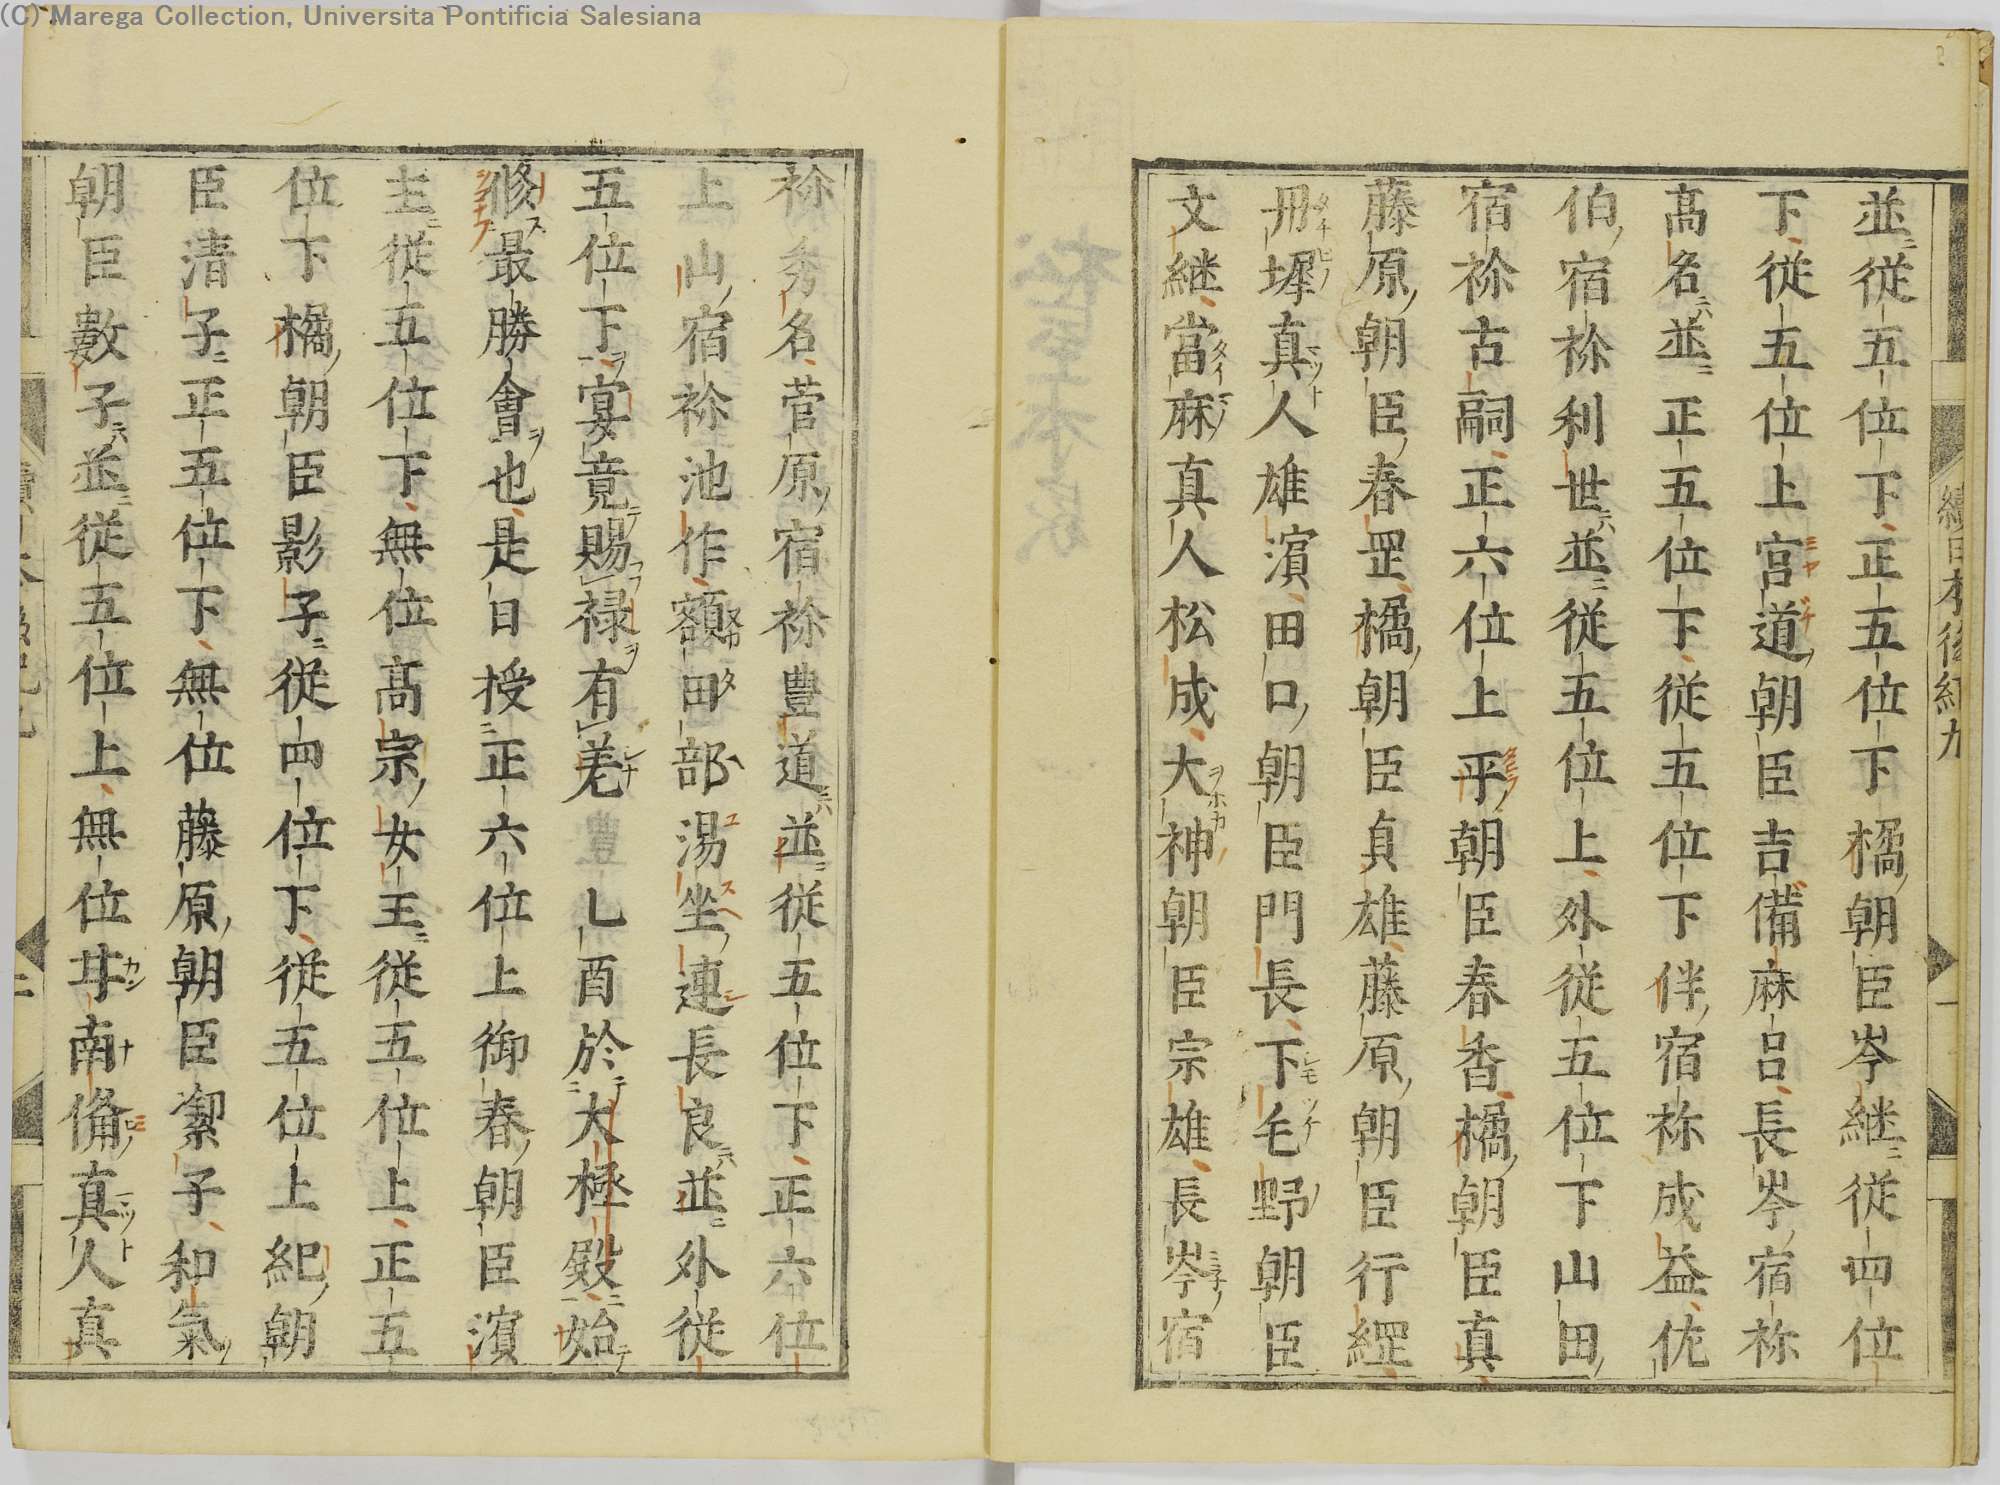 (C) Marega Collection, Universita Pontificia Salesiana
續日本後紀九
並從五位下正五位下橘朝臣岑継從四位
下從五位上宮道朝臣吉備麻呂長岑宿祢
髙名並正五位下從五位下伴宿祢成益佐
伯宿祢利世並從五位上外從五位下山田
宿祢古嗣正六位上平朝臣春香橘朝臣真
藤原朝臣春罡橘朝臣貞雄藤原朝臣行縄
丹墀真人雄濵田口朝臣門長下毛野朝臣
文継當麻真人松成大神朝臣宗雄長岑宿
祢秀名菅原宿祢豊道並從五位下正六位
上山宿祢池作額田部湯坐連長良並外從
五位下宴竟賜禄有差 乚酉於大極殿始
修最勝會也是日授正六位上御春朝臣濵
主從五位下無位髙宗女王從五位上正五
位下橘朝臣影子從四位下從五位上紀朝
臣清子正五位下無位藤原朝臣潔子和氣
朝臣數子並從五位上無位甘南備真人真